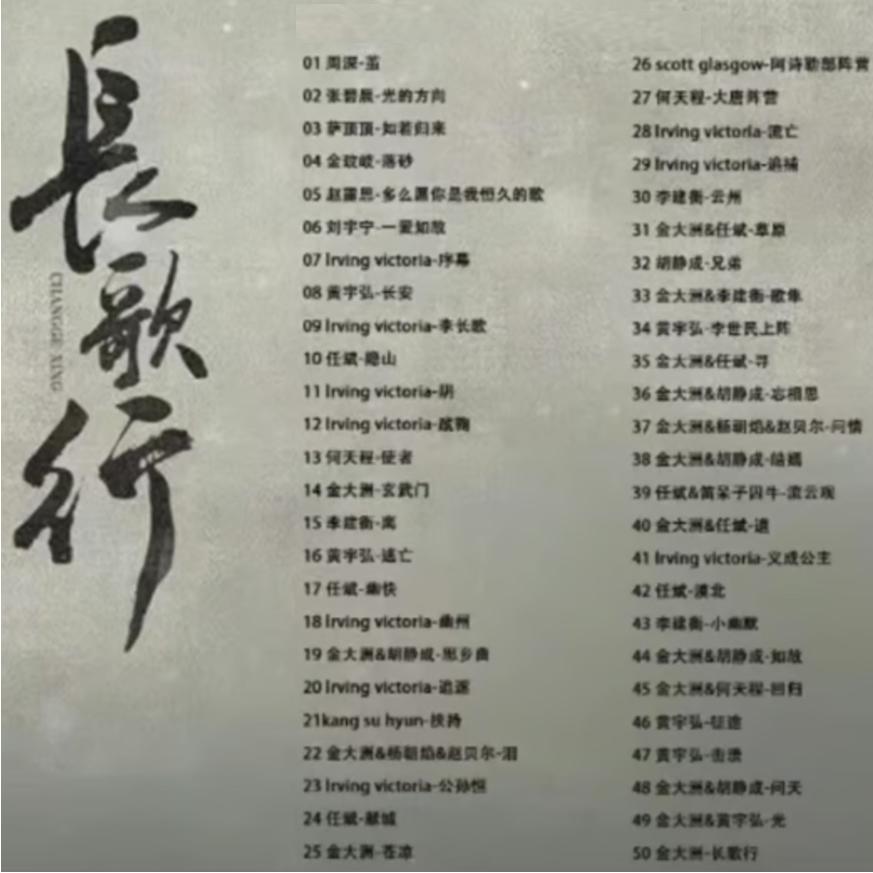 長歌行
CHANGGE XING
01 周深-茧
02 张碧晨-光的方向
03 萨顶顶-如若归来
04 金玟岐-落砂
05 赵露思-多么愿你是我恒久的歌
06 刘宇宁-一爱如故
07 lrving victoria-序幕
08 黄宇弘-长安
09 lrving victoria-李长歌
10 任斌-隐山
11 lrving victoria-阴
12 lrving victoria-蹴鞠
13 何天程-使者
14 金大洲-玄武门
15 李建衡-离
16 黄宇弘-逃亡
17 任斌-幽快
18 lrving victoria-幽州
19 金大洲&胡静成-思乡曲
20 lrving victoria-追逐
21kang su hyun-挟持
22 金大洲&杨朝焰&赵贝尔-泪
23 lrving victoria-公孙恒
24 任斌-献城
25 金大洲-苍凉
26 scott glasgow-阿诗勒部阵营
27 何天程-大唐阵营
28 lrving victoria-流亡
29 lrving victoria-追捕
30 李建衡-云州
31 金大洲&任斌-草原
32 胡静成-兄弟
33 金大洲&李建衡-歌隼
34 黄宇弘-李世民上阵
35 金大洲&任斌-寻
36 金大洲&胡静成-忘相思
37 金大洲&杨朝焰&赵贝尔-问情
38 金大洲&胡静成-皓嫣
39 任斌&笛呆子囚牛-流云观
40 金大洲&任斌-遗
41 lrving victoria-义成公主
42 任斌-漠北
43 李建衡-小幽默
44 金大洲&胡静成-如故
45 金大洲&何天程-回归
46 黄宇弘-征途
47 黄宇弘-击溃
48 金大洲&胡静成-问天
49 金大洲&黄宇弘-光
50 金大洲-长歌行